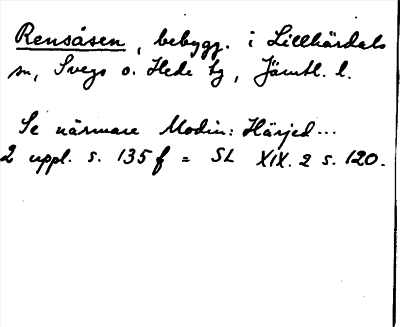 Rensåsen, bebygg. i Lillhärdals
sn, Svegs o. Hede tg, Jämtl. l.
Se närmare Modin: Härjed...
2 uppl. s. 135 f = SL XIX. 2 s. 120.